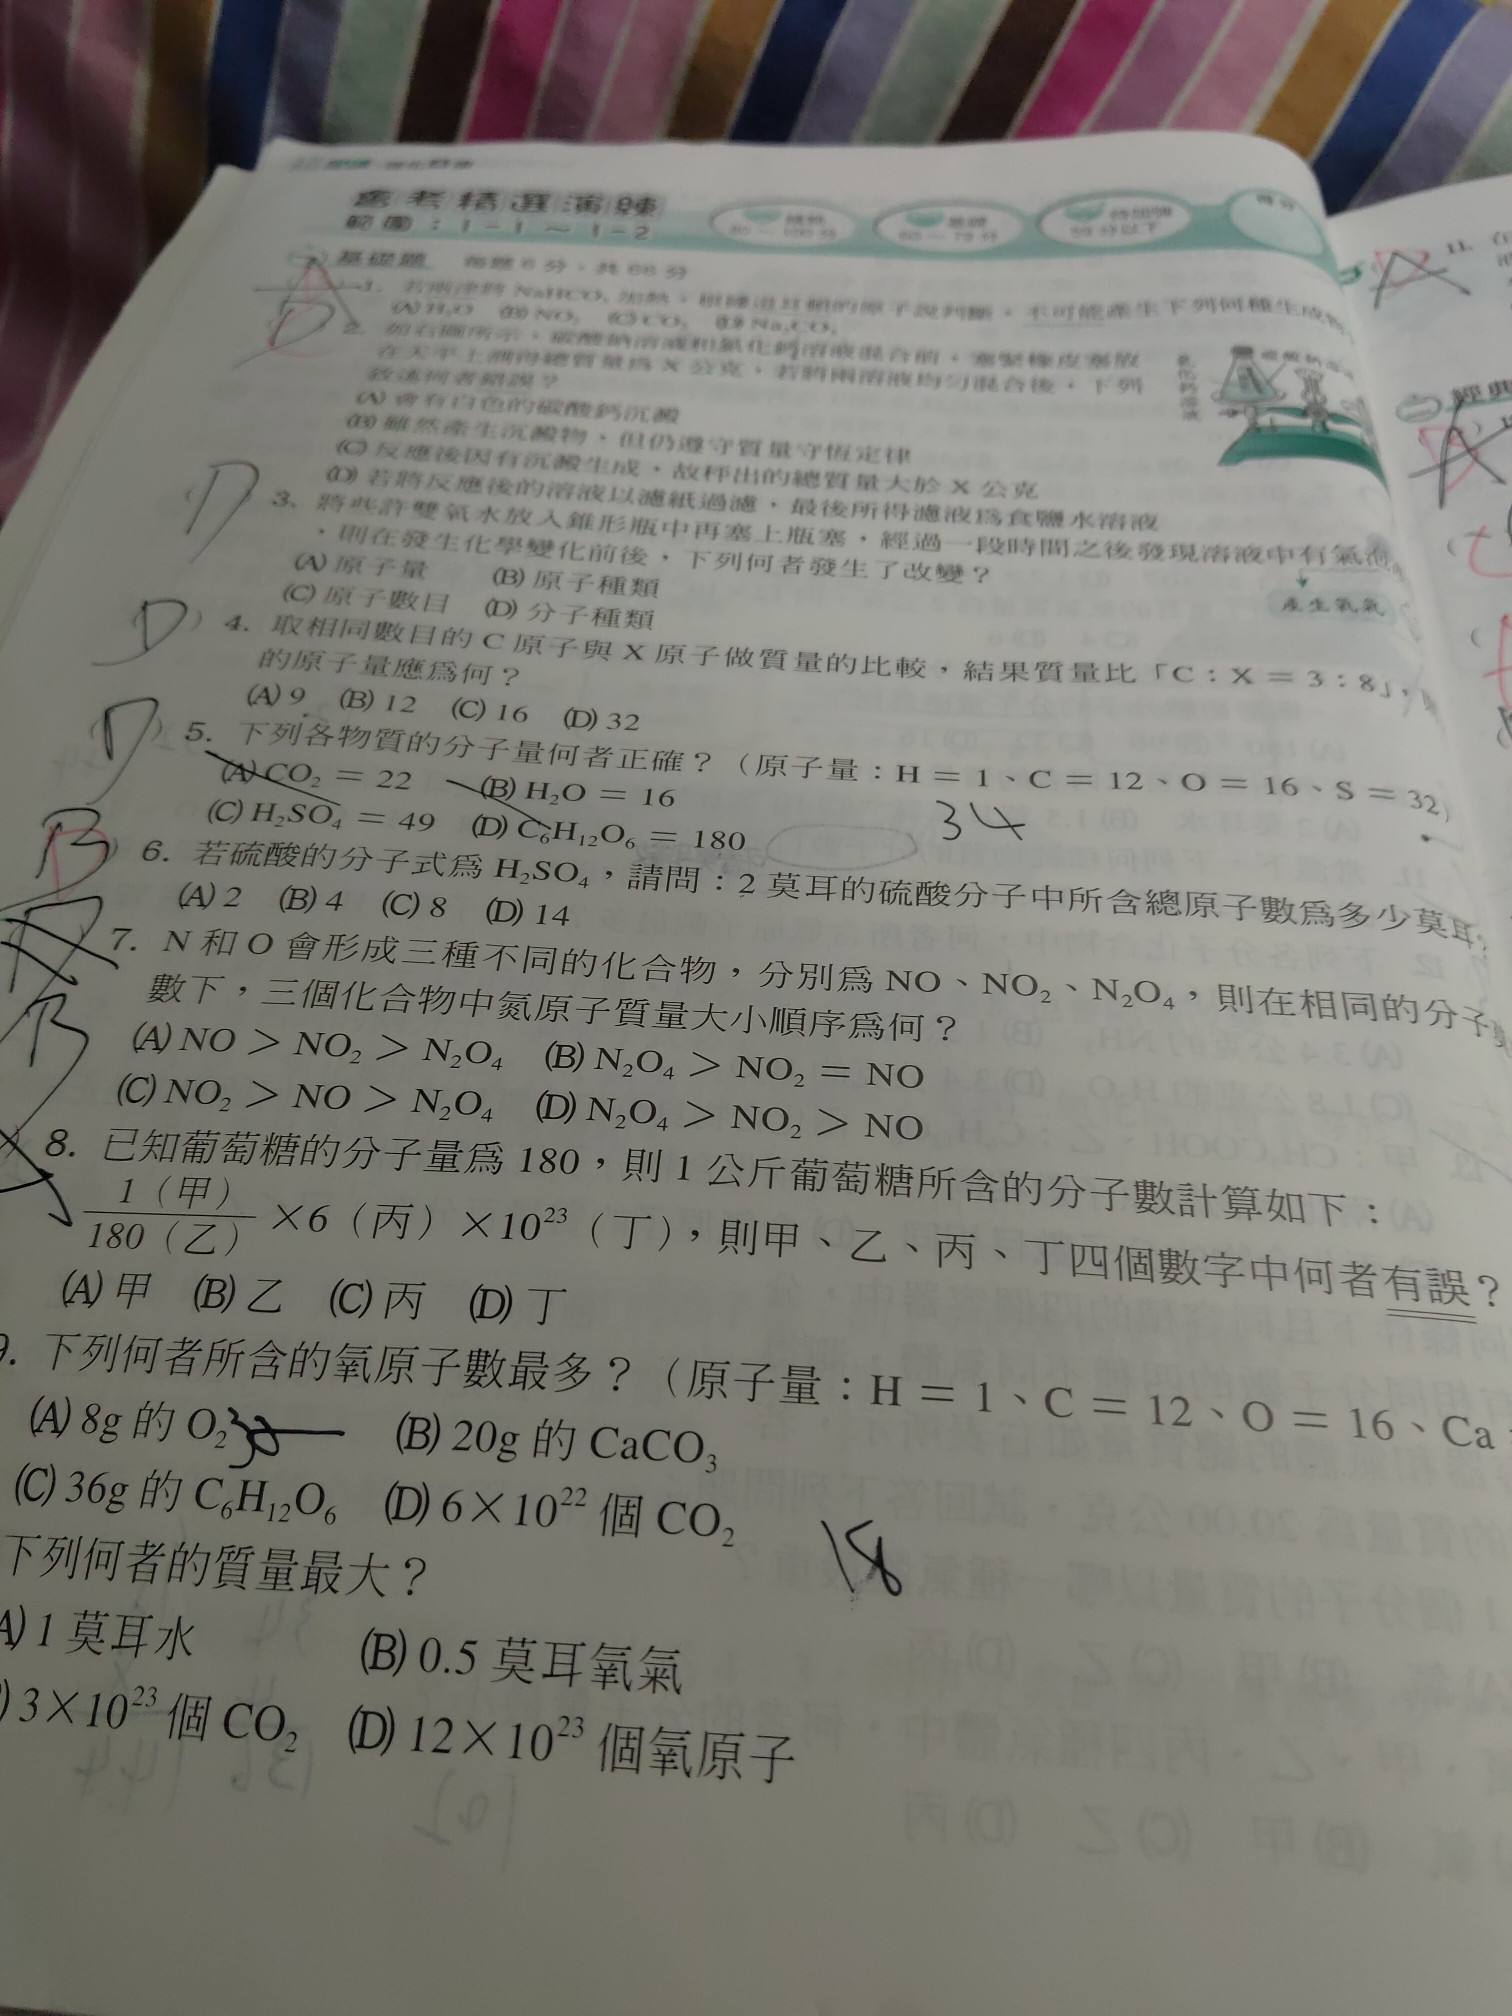 會考精選演練
範圍：1-1～1-2
基礎題 每題6分，共66分
1. 若將 NaHCO₃ 加熱，根據道耳頓的原子說判斷，不可能產生下列何種生成物
(A) H₂O (B) NO₂ (C) CO₂ (D) Na₂CO₃
2. 如右圖所示，碳酸鈉溶液和氯化鈣溶液混合前，塞緊橡皮塞放
在天平上測得總質量為 X 公克，若將兩溶液均勻混合後，下列
敘述何者錯誤？
(A) 會有白色的碳酸鈣沉澱
(B) 雖然產生沉澱物，但仍遵守質量守恆定律
(C) 反應後因有沉澱生成，故秤出的總質量大於 X 公克
(D) 若將反應後的溶液以濾紙過濾，最後所得濾液為食鹽水溶液
D
3. 將些許雙氧水放入錐形瓶中再塞上瓶塞，經過一段時間之後發現溶液中有氣泡
，則在發生化學變化前後，下列何者發生了改變？
(A) 原子量 (B) 原子種類
產生氧氣
(C) 原子數目 (D) 分子種類
D
4. 取相同數目的 C 原子與 X 原子做質量的比較，結果質量比「C：X＝3：8」，
的原子量應為何？
(A) 9 (B) 12 (C) 16 (D) 32
D
5. 下列各物質的分子量何者正確？（原子量：H＝1、C＝12、O＝16、S＝32）
(A) CO₂＝22 (B) H₂O＝16
34
(C) H₂SO₄＝49 (D) C₆H₁₂O₆＝180
B D
6. 若硫酸的分子式為 H₂SO₄，請問：2 莫耳的硫酸分子中所含總原子數為多少莫耳？
(A) 2 (B) 4 (C) 8 (D) 14
7. N 和 O 會形成三種不同的化合物，分別為 NO、NO₂、N₂O₄，則在相同的分子
數下，三個化合物中氮原子質量大小順序為何？
B
(A) NO＞NO₂＞N₂O₄ (B) N₂O₄＞NO₂＝NO
(C) NO₂＞NO＞N₂O₄ (D) N₂O₄＞NO₂＞NO
8. 已知葡萄糖的分子量為 180，則 1 公斤葡萄糖所含的分子數計算如下：
1（甲）
180（乙） ×6（丙）×10²³（丁），則甲、乙、丙、丁四個數字中何者有誤？
(A) 甲 (B) 乙 (C) 丙 (D) 丁
9. 下列何者所含的氧原子數最多？（原子量：H＝1、C＝12、O＝16、Ca
(A) 8g 的 O₂ (B) 20g 的 CaCO₃
(C) 36g 的 C₆H₁₂O₆ (D) 6×10²² 個 CO₂
18
下列何者的質量最大？
A) 1 莫耳水 (B) 0.5 莫耳氧氣
) 3×10²³ 個 CO₂ (D) 12×10²³ 個氧原子
11.